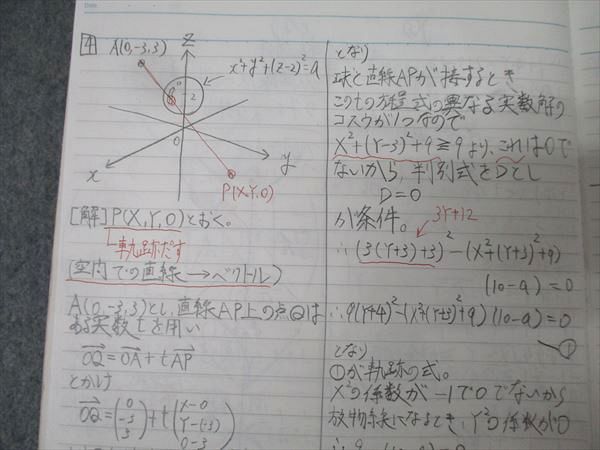 Date
4
A(0,-3,3)
Z
x²+y²+(z-2)²=a
Q
2
0
x
y
P(X,Y,0)
[解] P(X,Y,0)とおく。
軌跡だす
(空間での直線→ベクトル)
A(0,-3,3)とし,直線AP上の点Qは
ある実数tを用い
OQ=OA+tAP
とかけ
OQ=(0 -3 3)+t(X-0 Y-(-3) 0-3)
となり
球と直線APが接するとき
このtの方程式の異なる実数解の
コスウが1つなので
X²+(Y-3)²+9≧9より,これは0で
ないから,判別式をDとし
D=0
が条件。
3Y+12
∴(3(Y+3)+3)²-(X²+(Y+3)²+9)
(10-a)=0
∴9(Y+4)²-(X²+(Y+3)²+9)(10-a)=0
①
となり
①が軌跡の式。
X²の係数が-1で0でないから
放物線になるとき,Y²の係数が0